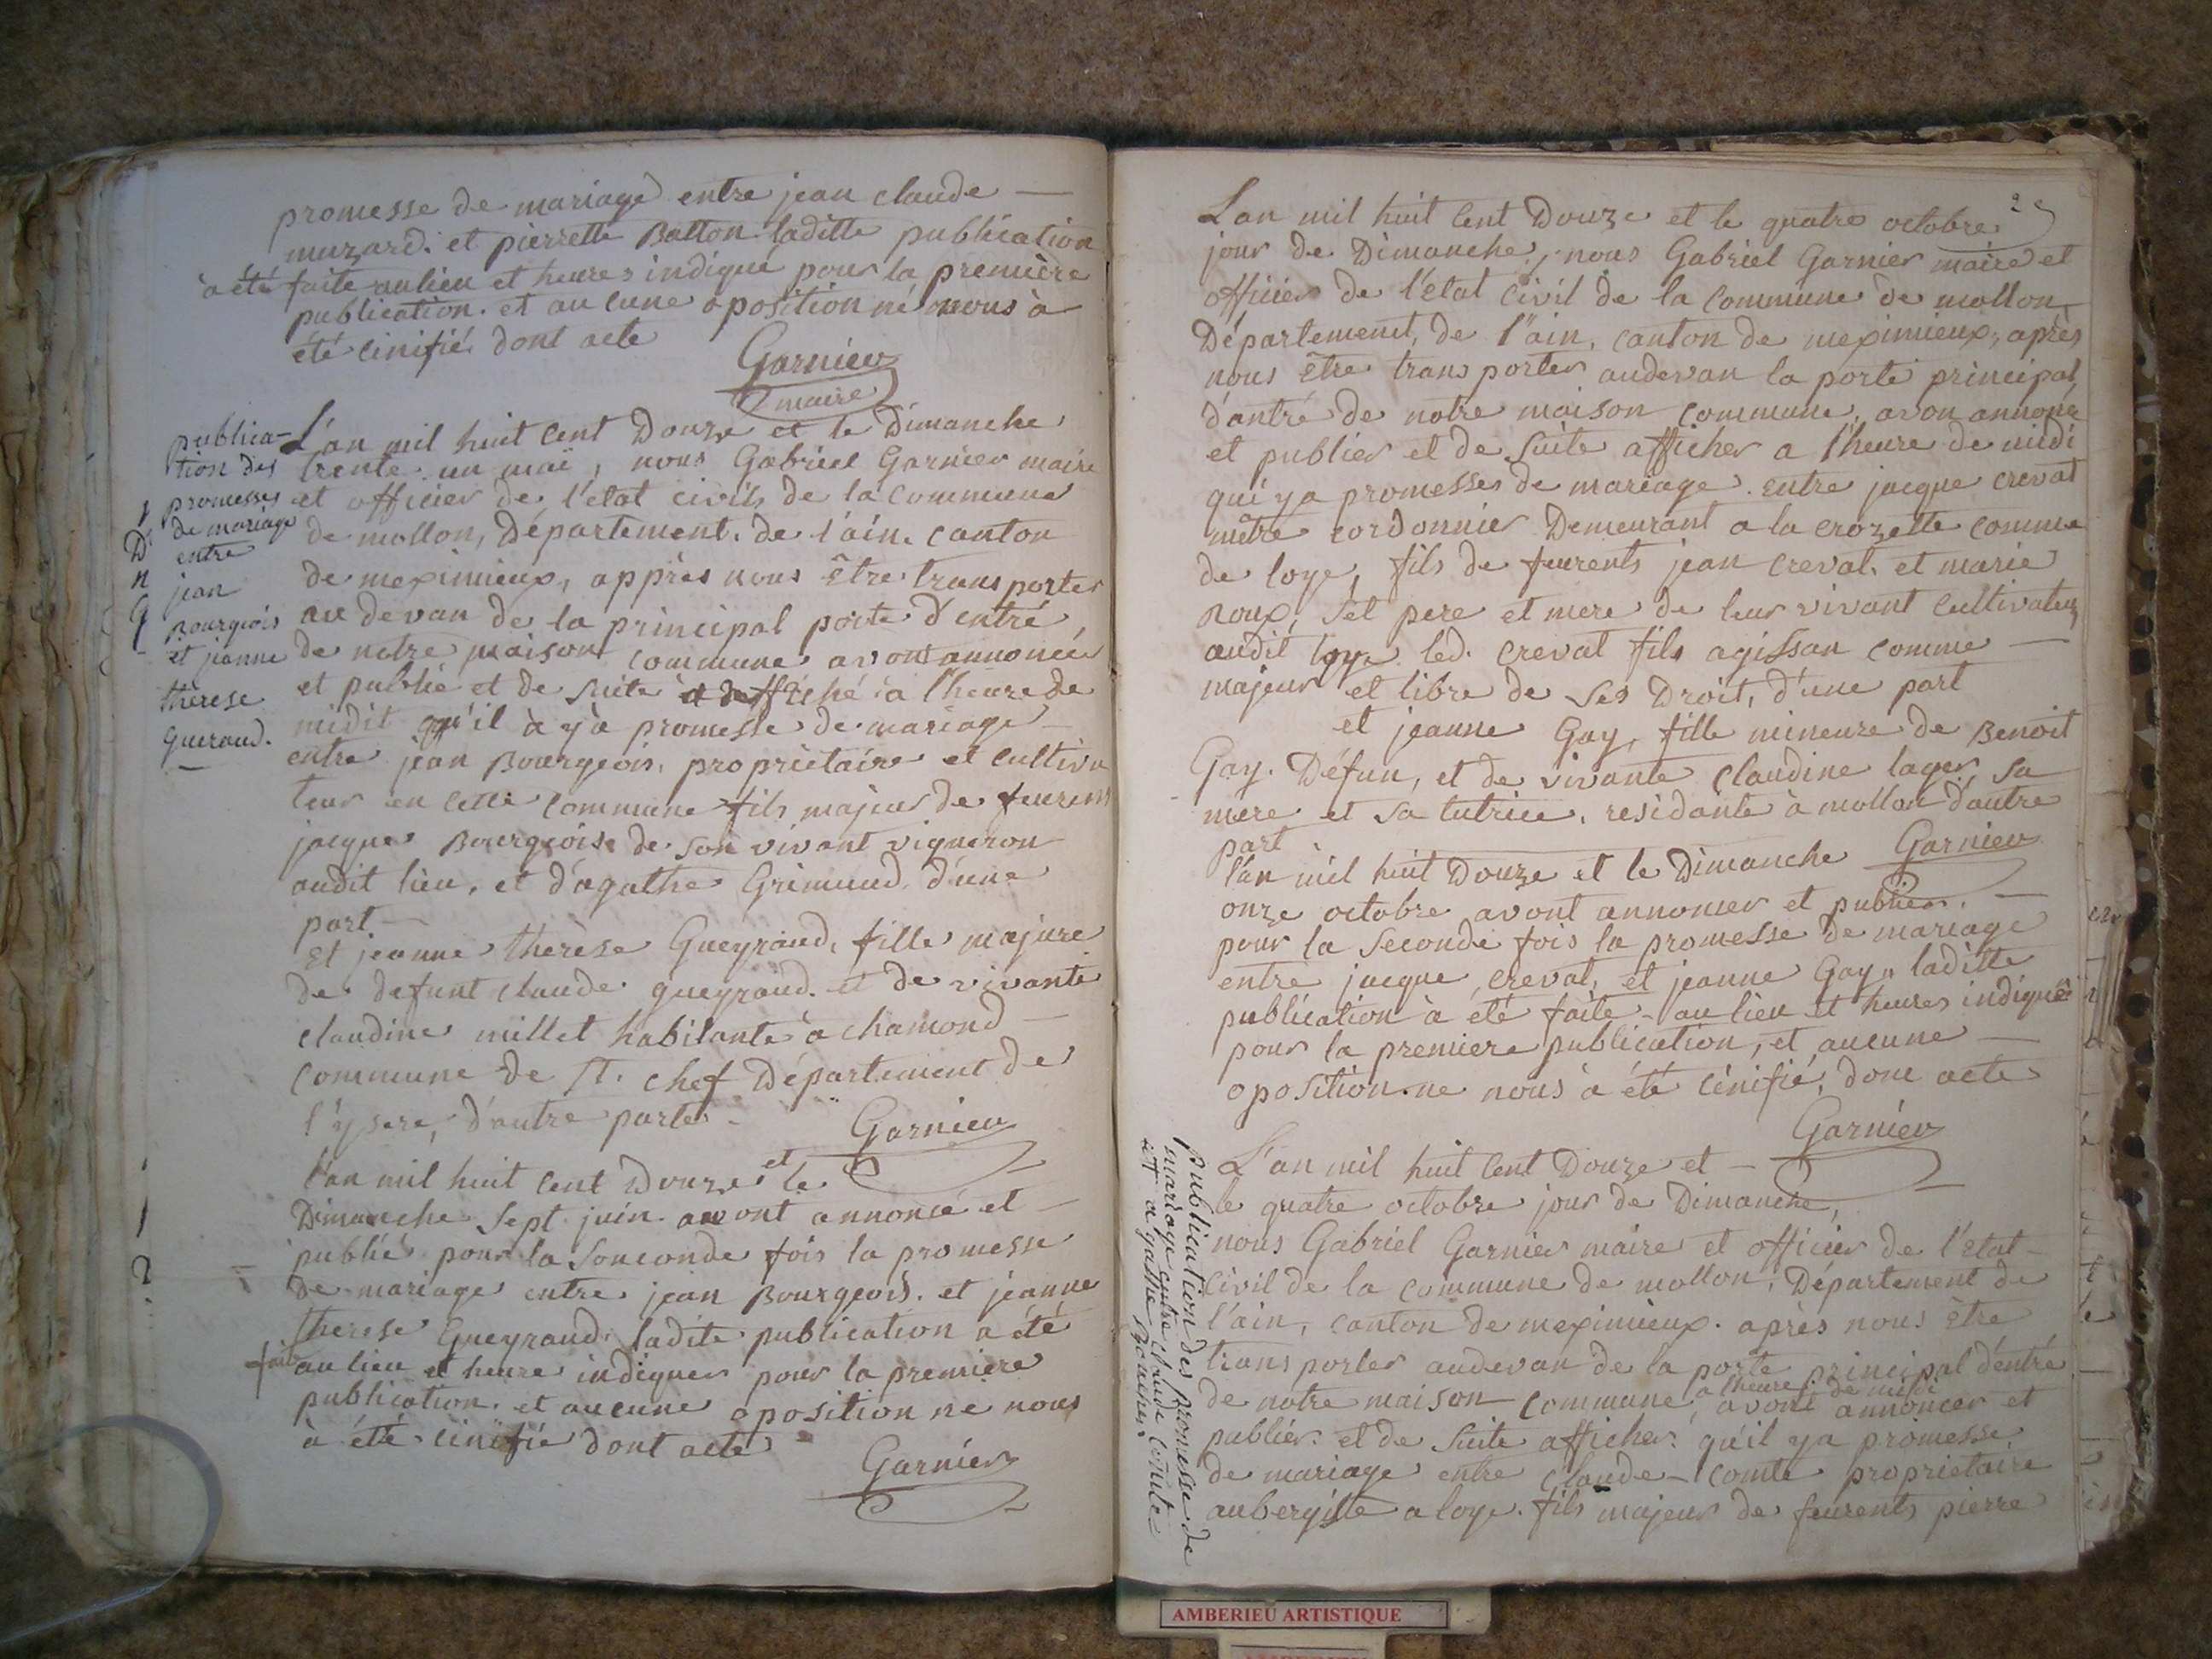 promesse de mariage entre jean claude —
muzard. et pierrette Balton laditte publication
à été faite aulieu et heures indiqué pour la premiere
publication. et aucune oposition né nous à
été cinifié dont acte
Garnier
maire
publica-
tion des
promesses
de mariage
entre
jean
Bourgeois
et jeanne
thèrese
Gueraud.
L'an mil huit Cent Douze et le Dimanche
trente un maï, nous Gabriel Garnier maire
et officier de l'etat civils de la Commune
de mollon, Département. de l'ain. Canton
de meximieux, apprès nous être transporter
au devan de la principal porte d'entré,
de notre maison commune avont annoncer
et publié et de suite affiché à l'heure de
midit qu'il à y à promesse de mariage
entre jean Bourgeois, propriètaire et Cultiva
teur en cette Commune fils majeur de feurens
jacque Bourgeois de son vivant vigneron
audit lieu, et d'agathe Grimaud d'une
part —
Et jeanne thèrèse Gueyraud, fille majure
de defunt claude gueyraud. et de vivante
claudine millet habitante à chamond —
Commune de St. chef Département de
l'ysere, d'autre parte
Garnier
l'an mil huit Cent Douze et le
Dimanche Sept juin avont annoncé et —
publié pour la Souconde fois la promesse
de mariage entre jean Bourgeois. et jeanne
therese Gueyraud. ladite publication a été
faite au lieu et heure indiquer pour la premiere
publication. et aucune oposition ne nous
à été cinifié dont acte
Garnier
L'an mil huit Cent Douze et le quatre octobre
jour de Dimanche, nous Gabriel Garnier maire et
officier de l'etat civil de la Commune de mollon
Département, de l'ain, Canton de meximieux, après
nous être transporter audevan la porte principal,
d'antré de notre maison Commune, avon annoncé
et publier et de Suite afficher a l'heure de midi
qui ya promesses de mariage entre jacque crevat
mêtre cordonnier Demeurant a la crozette comme
de loye, fils de feurents jean crevat. et marie
Roux, Set pere et mere de leur vivant Cultivateur
audit loye led. Crevat fils agissan comme —
majeur et libre de Ses Droit, d'une part
et jeanne Gay, fille mineure de Benoit
Gay. Défun, et de vivante Claudine lager, Sa
mere et Sa tutrice, residante à mollon d'autre
part
Garnier
l'an mil huit Douze et le Dimanche
onze octobre avont annoncer et publier. —
pour la Seconde fois la promesse de mariage
entre jacque crevat, et jeanne Gay, laditte
publication à été faite au lieu et heures indiquée
pour la premiere publication, et aucune —
oposition. ne nous à été Cénifié, donc acte
Garnier
publication des promesse de
mariage entre claude comte
et agathe
L'an mil huit Cent Douze et —
le quatre octobre jour de Dimanche,
nous Gabriel Garnier maire et officier de l'etat
Civil de la Commune de mollon, Département de
l'ain, canton de meximieux. après nous être
transporter audevan de la porte principal d'entré
de notre maison Commune, a l'heure de midi avont annoncer et
publier. et de Suite afficher. qu'il ya promesse
de mariage entre Claude Comte propriètaire
aubergiste a loye. fils majeur de feurents pierre
AMBERIEU ARTISTIQUE